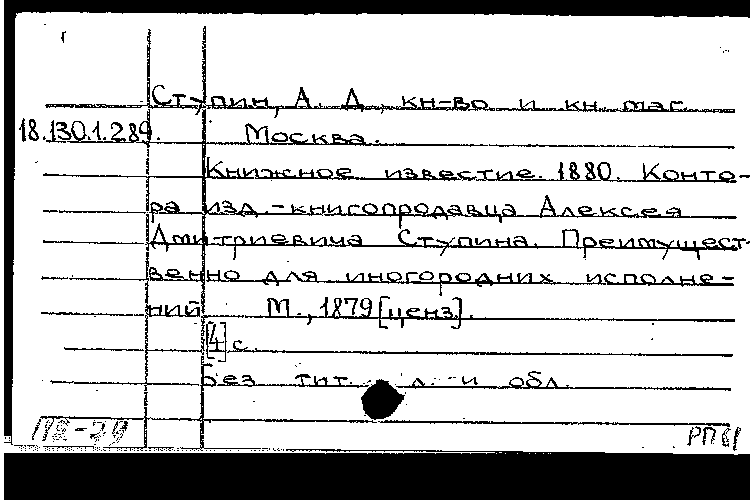 Ступин, А. Д., кн-во и кн. маг.
18.130.1.289. Москва.
Книжное известие. 1880. Конто-
ра изд.-книгопродавца Алексея
Дмитриевича Ступина. Преимущест-
венно для иногородних исполне-
ний М., 1879 [ценз].
[4] с.
Без тит. л. и обл.
РПБ1